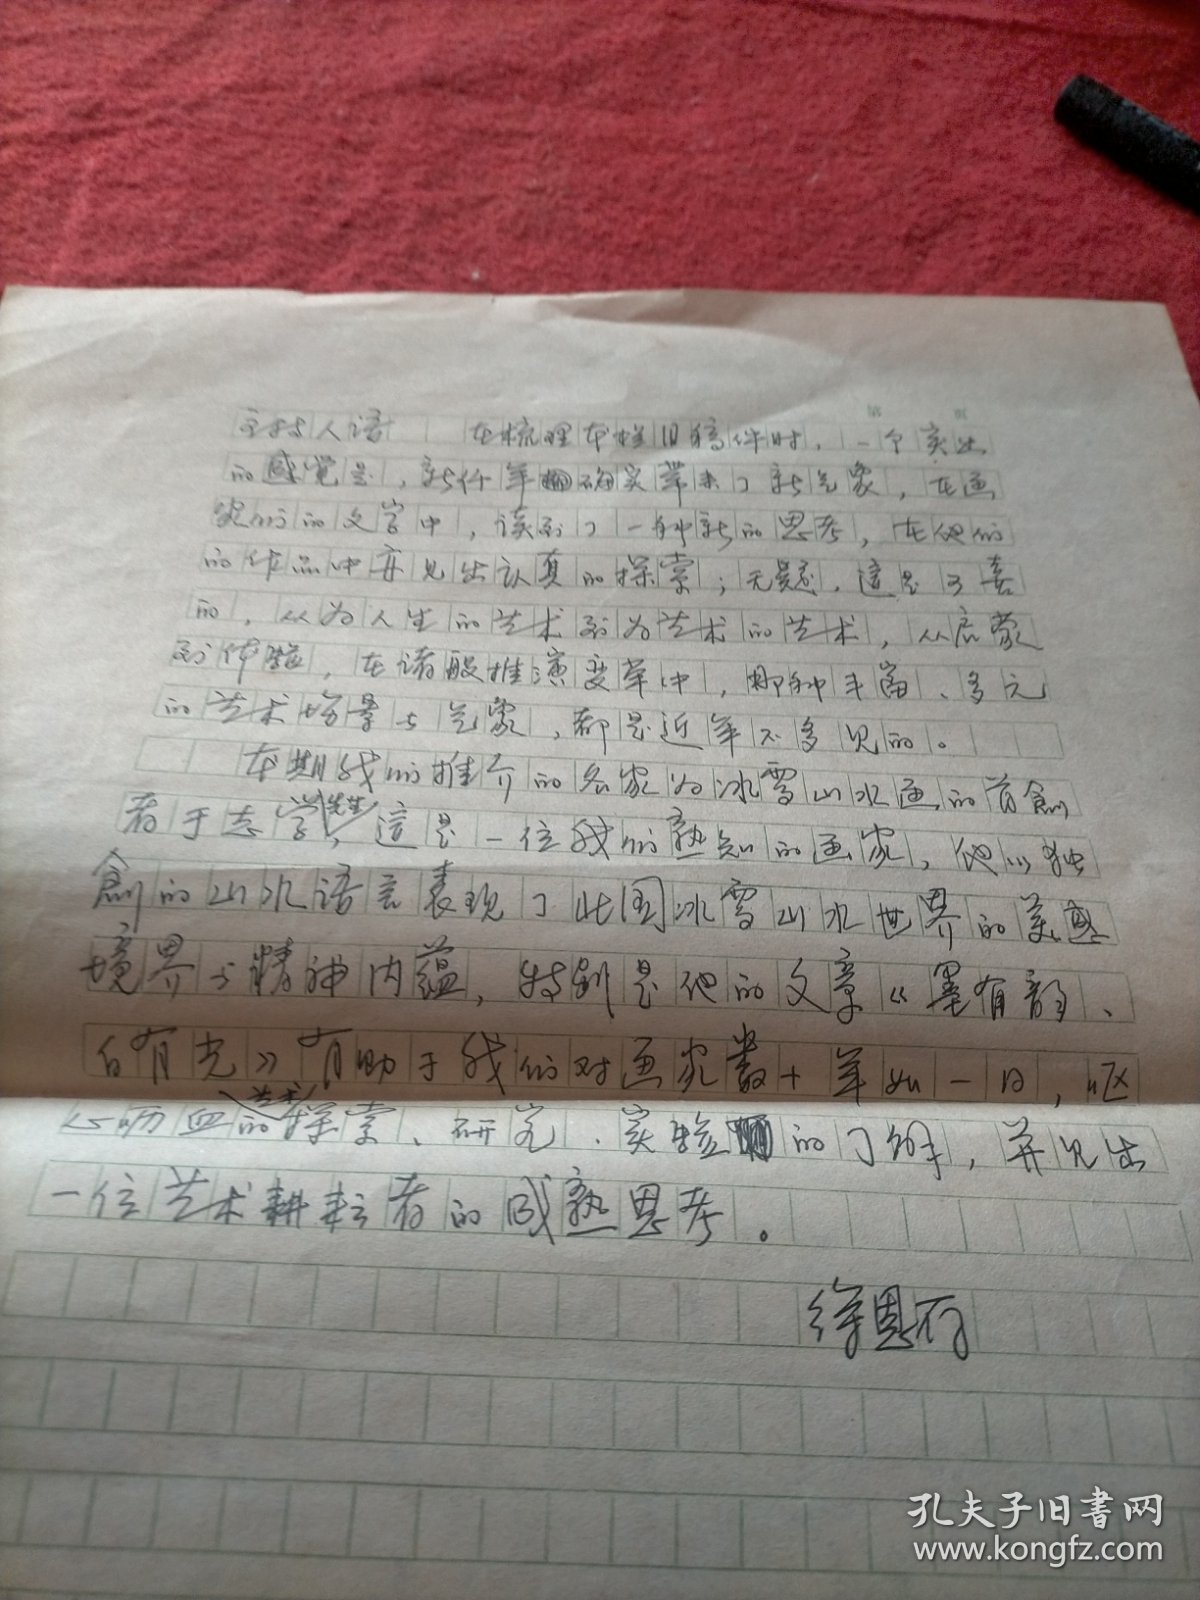 第 页
主持人语 在梳理本栏旧稿件时，一个突出
的感觉是，新千年确实带来了新气象，在画
家们的文字中，读到了一种新的思考，在他们
的作品中亦见出认真的探索；无疑，这是可喜
的，从为人生的艺术到为艺术的艺术，从启蒙
到体验，在诸般推演变革中，那种丰富、多元
的艺术场景与气象，都是近年不多见的。
本期我们推介的名家为冰雪山水画的首創
者于志学先生，這是一位我们熟知的画家，他以独
創的山水语言表现了北国冰雪山水世界的美感
境界与精神内蕴，特别是他的文章《墨有韵、
白有光》有助于我们对画家数十年如一日，呕
心沥血的艺术探索、研究、实验的了解，并见出
一位艺术耕耘者的成熟思考。
徐恩存
孔夫子旧书网
www.kongfz.com